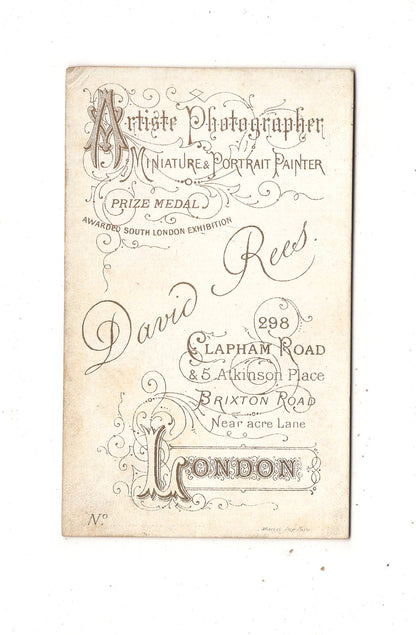 Artiste Photographer
Miniature & Portrait Painter
PRIZE MEDAL
AWARDED SOUTH LONDON EXHIBITION
David Rees.
298
CLAPHAM ROAD
& 5 Atkinson Place
BRIXTON ROAD
Near acre Lane
LONDON
No